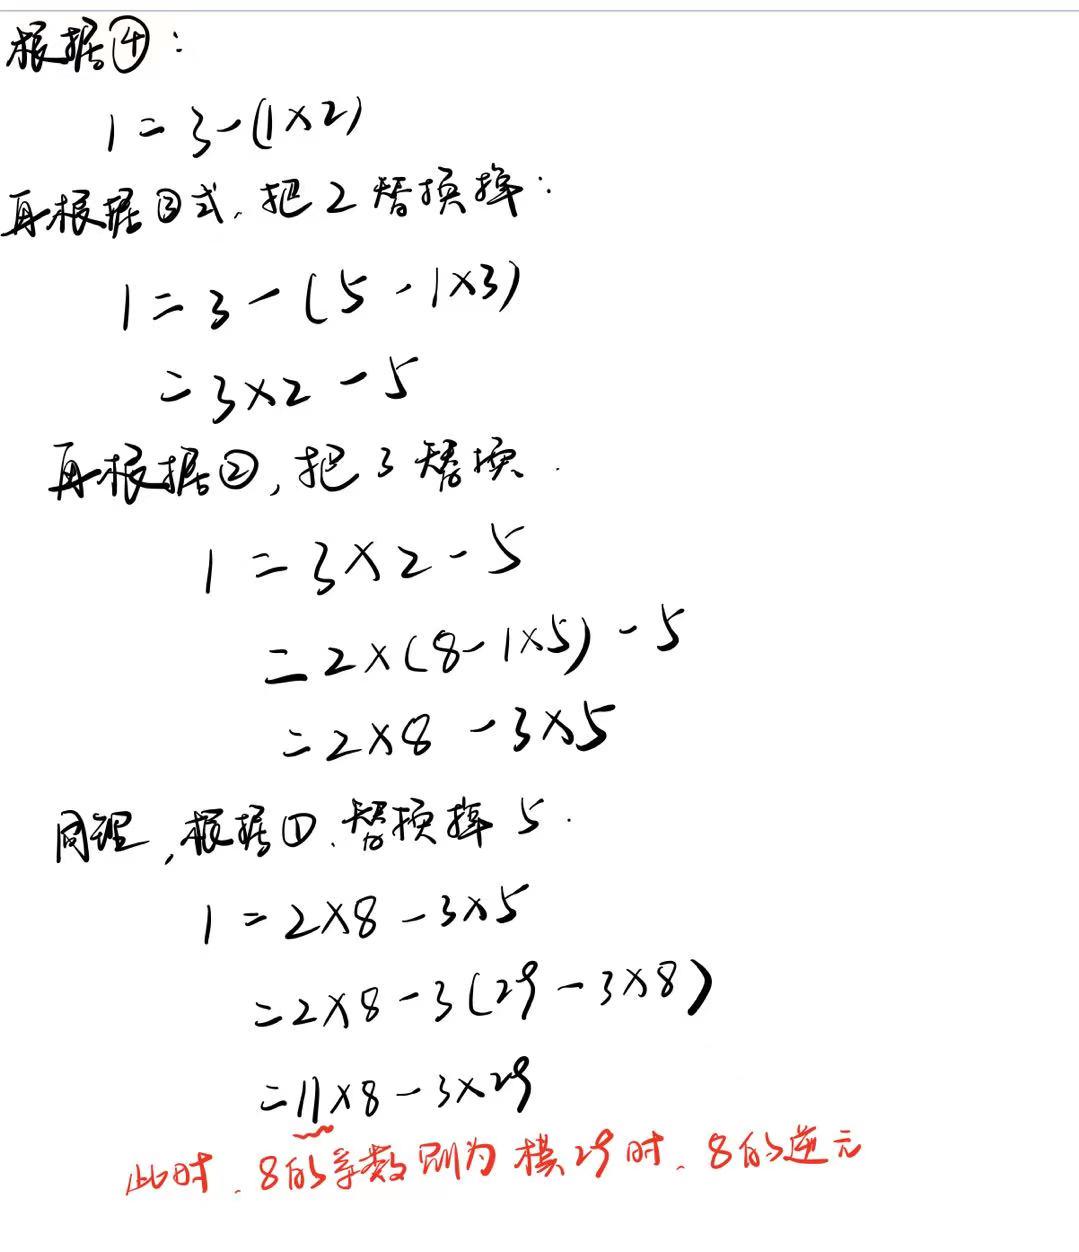 根据④:
1=3-(1×2)
再根据③式,把2替换掉:
1=3-(5-1×3)
=3×2-5
再根据②,把3替换.
1=3×2-5
=2×(8-1×5)-5
=2×8-3×5
同理,根据①,替换掉5.
1=2×8-3×5
=2×8-3(29-3×8)
=11×8-3×29
此时,8的系数则为模29时,8的逆元